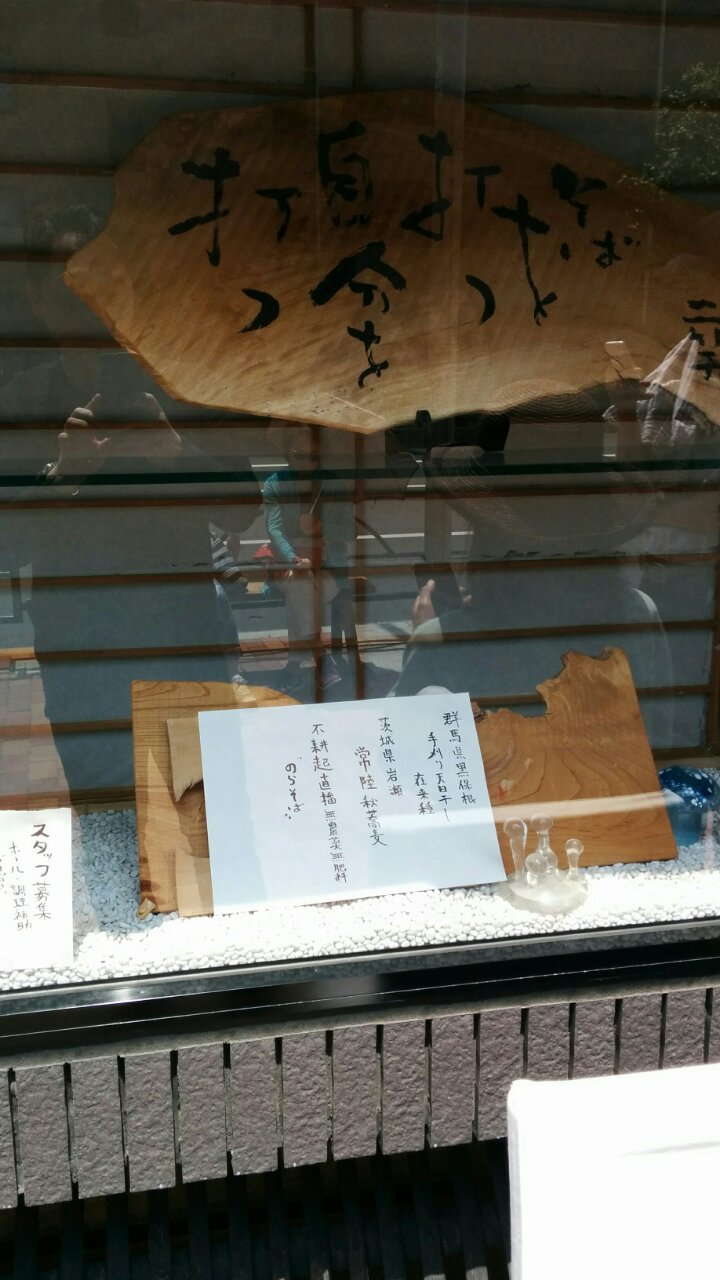 そばを
打つ
自分を
打つ
群馬県黒保根
手刈り天日干し
在来種
茨城県岩瀬
常陸秋蕎麦
不耕起直播無農薬無肥料
のらそば
スタッフ募集
ホール、調理補助